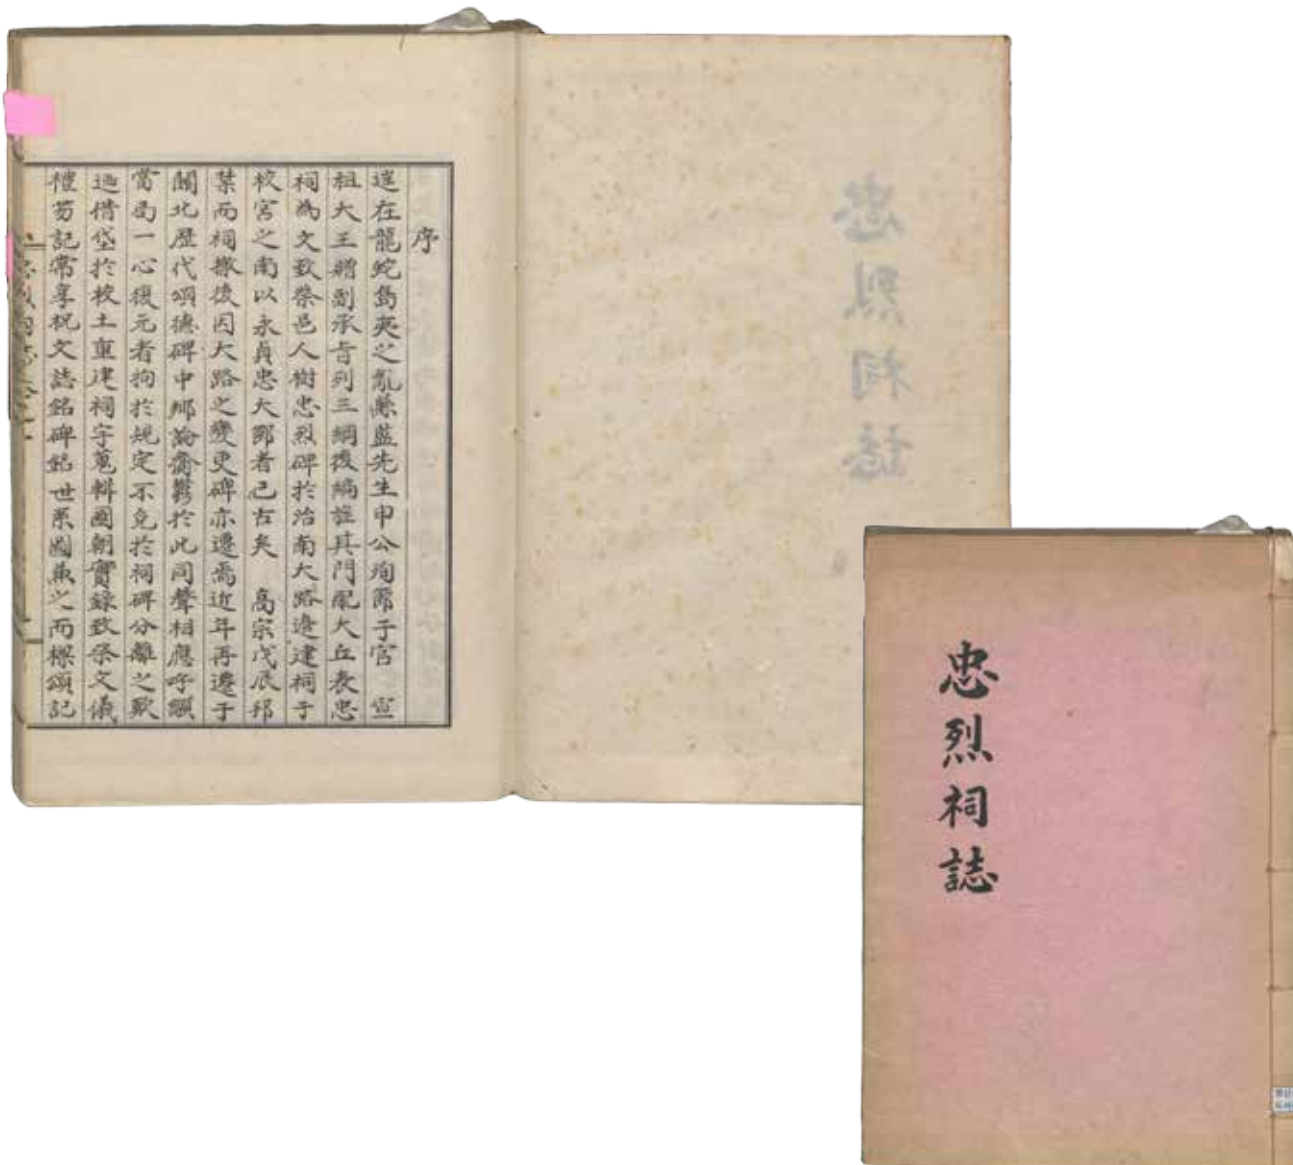 序
逞在龍蛇島夷之亂縣監先生申公殉節于官　宣
祖大王贈副承旨列三綱後編旌其門配大丘表忠
祠為文致祭邑人樹忠烈碑於治南大路邊建祠于
校宮之南以永貞忠大節者已古矣　高宗戊辰邦
禁而祠撤後因大路之變更碑亦遷焉近年再遷于
關北歷代頌德碑中鄉論齎鬱於此同聲相應呼顧
當局一心復元者拘於規定不免於祠碑分離之歎
迺借垈於校土重建祠宇蒐輯國朝實錄致祭文儀
禮笏記常享祝文誌銘碑銘世系圖蕆之而樑頌記
忠烈祠誌
忠烈祠誌